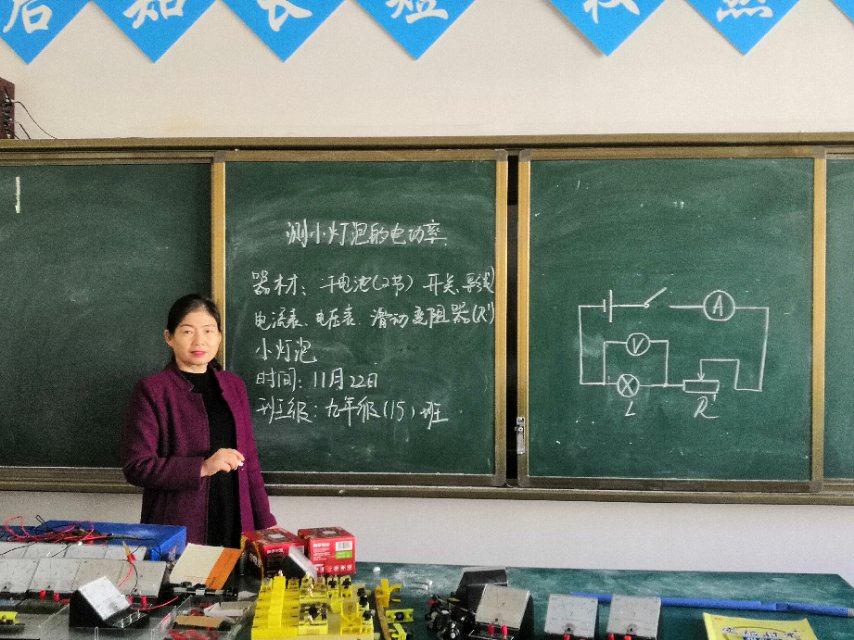 后知长短 权然
测小灯泡的电功率
器材：干电池(2节) 开关、导线
电流表、电压表、滑动变阻器(R')
小灯泡
时间：11月22日
班级：九年级(15)班
A
V
L
R